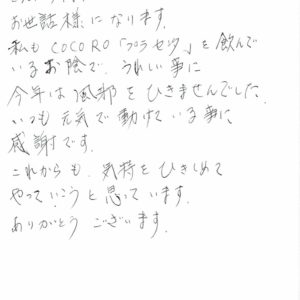 お世話様になります.
私も COCORO「プラセンタ」を飲んで
いるお陰で. うれしい事に
今年は風邪をひきませんでした.
いつも元気で働けている事に
感謝です.
これからも. 気持をひきしめて
やっていこうと思っています.
ありがとうございます.